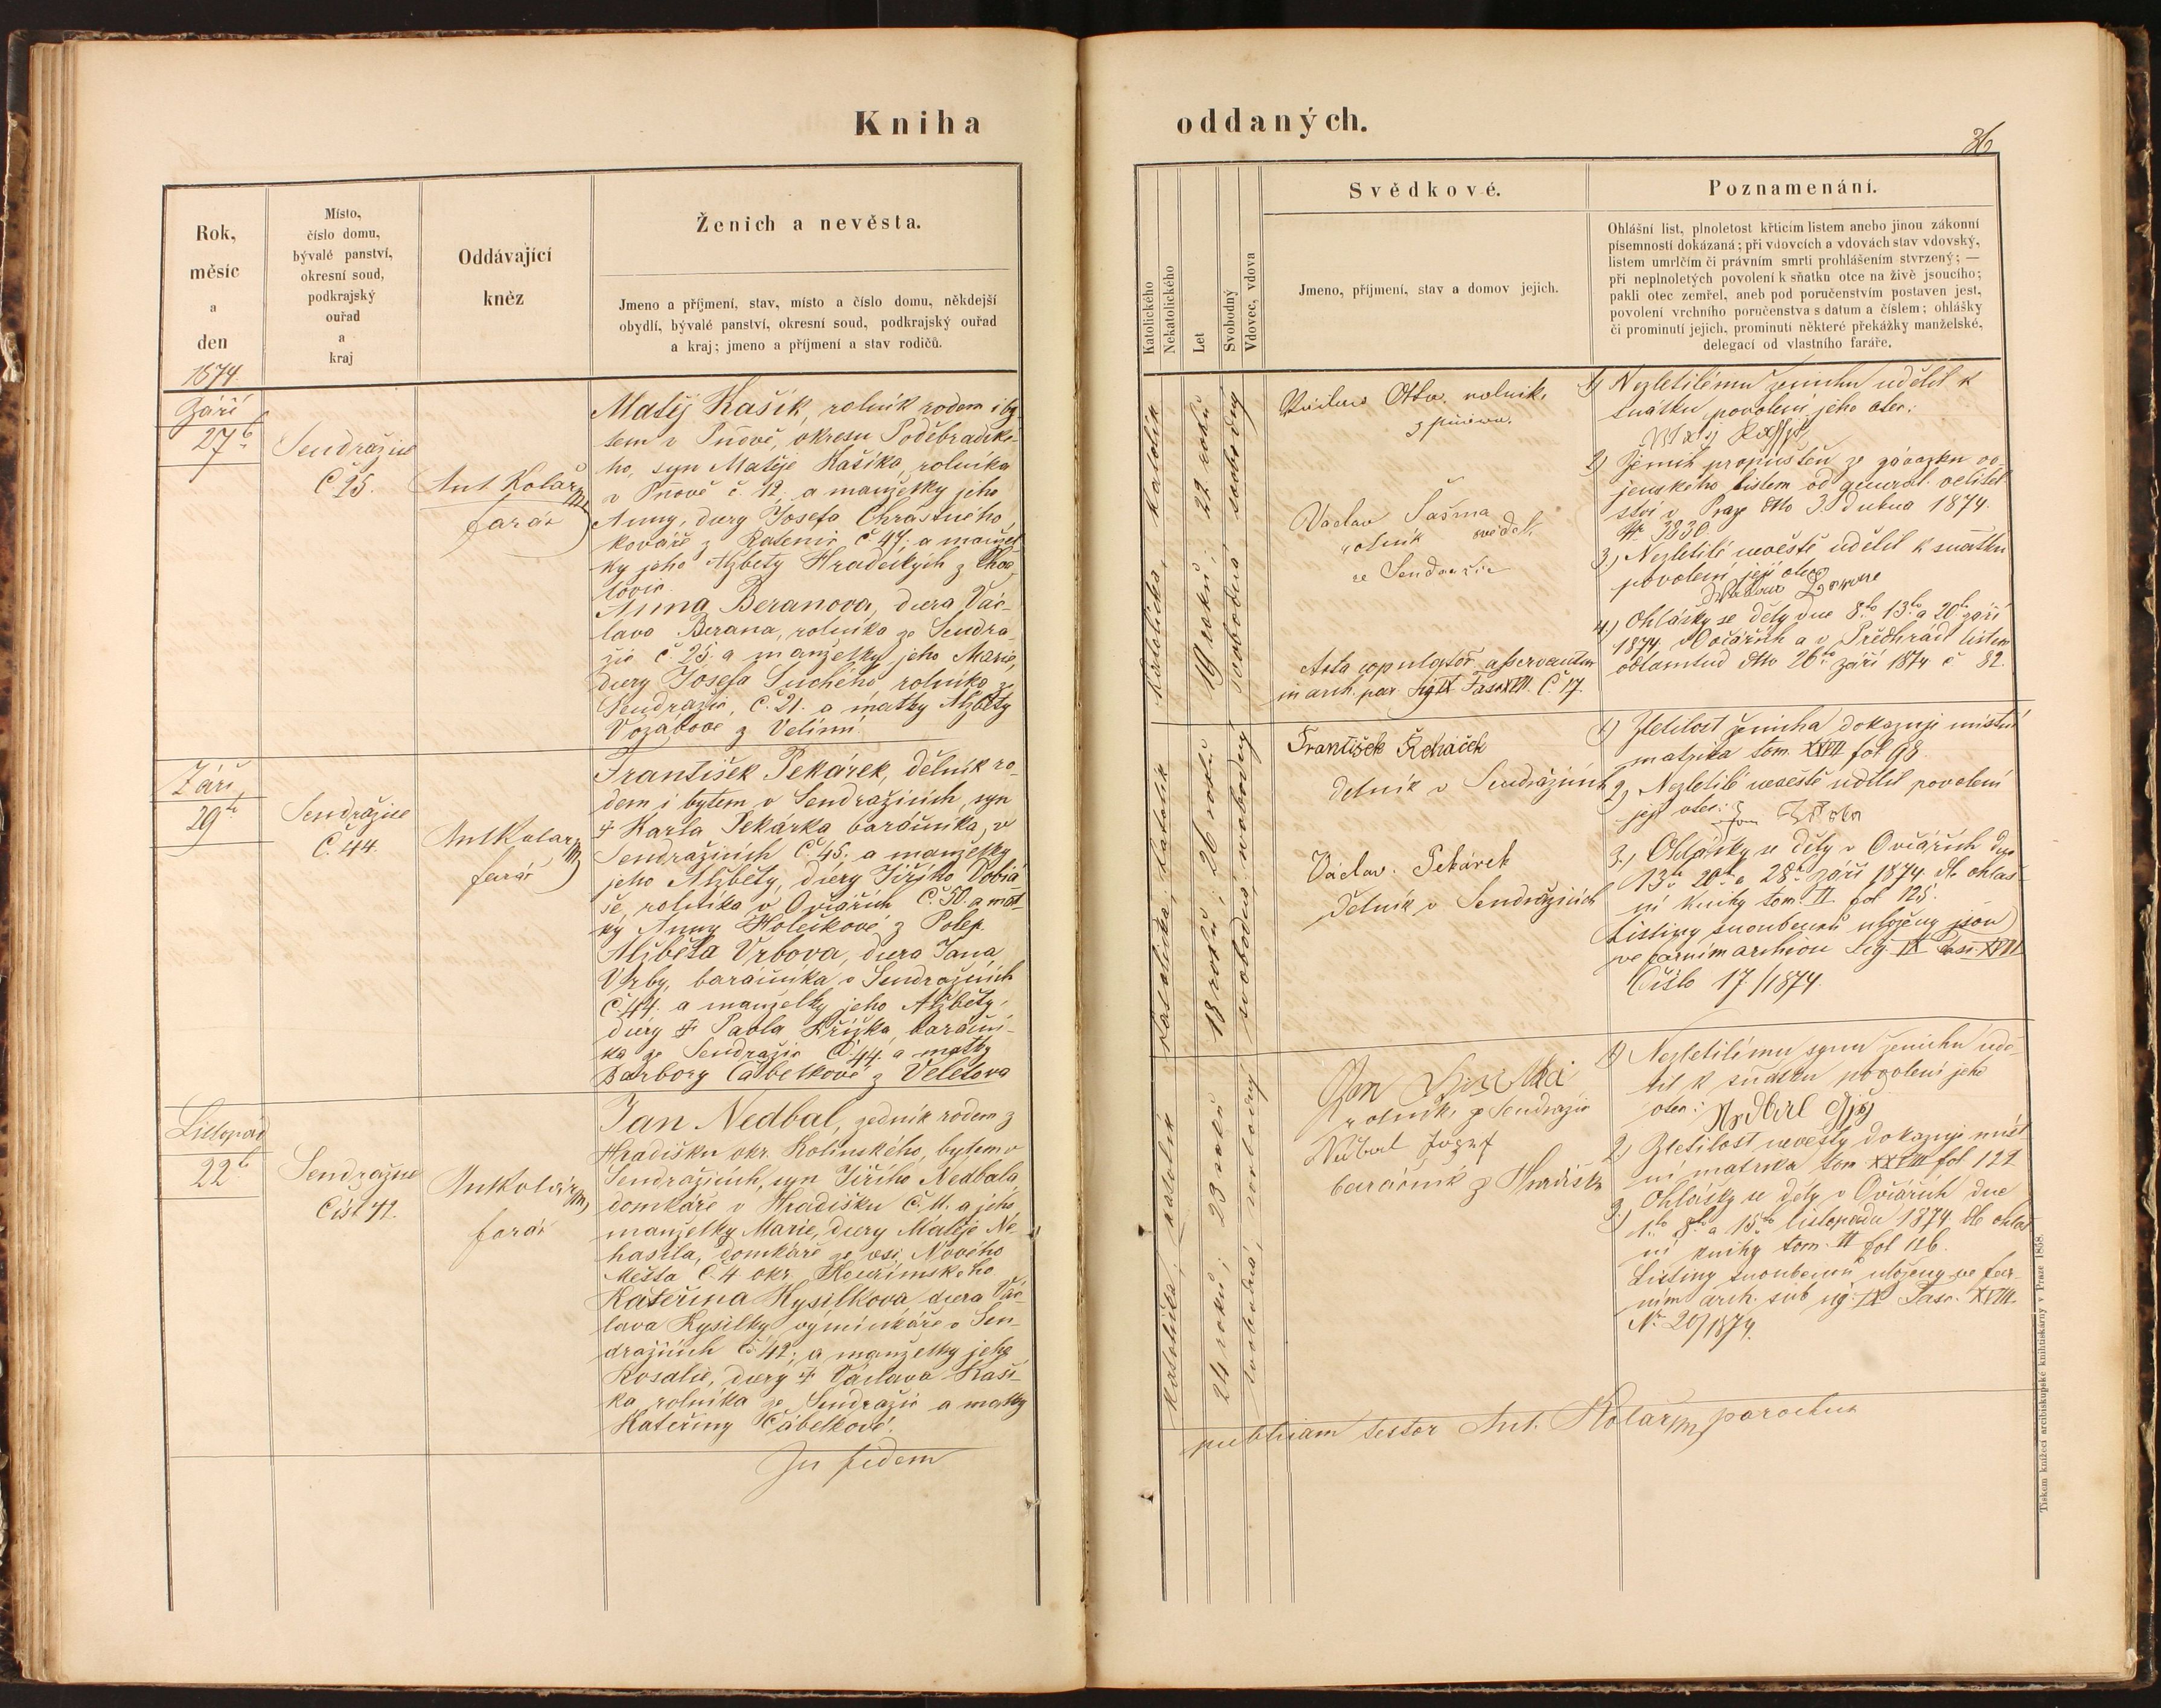 Kniha
oddaných.
36
Rok,
měsíc
a
den
1874
Místo,
číslo domu,
bývalé panství,
okresní soud,
podkrajský
ouřad
a
kraj
Oddávající
kněz
Ženich a nevěsta.
Jmeno a příjmení, stav, místo a číslo domu, někdejší
obydlí, bývalé panství, okresní soud, podkrajský ouřad
a kraj; jmeno a příjmení a stav rodičů.
Katolického
Nekatolického
Let
Svobodný
Vdovec, vdova
Svědkové.
Jmeno, příjmení, stav a domov jejich.
Poznamenání.
Ohlášní list, plnoletost křticím listem anebo jinou zákonní
písemností dokázaná; při vdovcích a vdovách stav vdovský,
listem umrlčím či právním smrti prohlášením stvrzený; —
při neplnoletých povolení k sňatku otce na živě jsoucího;
pakli otec zemřel, aneb pod poručenstvím postaven jest,
povolení vrchního poručenstva s datum a číslem; ohlášky
či prominutí jejich, prominutí některé překážky manželské,
delegací od vlastního faráře.
Září
27ho
Sendražice
Č 25.
Ant Kolář
farář
Matěj Kašík, rolník rodem i by
tem v Pňově, okresu Poděbradské-
ho, syn Matěje Kašíka, rolníka
v Pňově č. 12. a manželky jeho
Anny, dcery Josefa Chrástného,
kováře z Ratenic č 47. a manžel
ky jeho Alžbety Hradeckých z
Anna Beranova, dcera Vác-
lava Berana, rolníka ze Sendra-
žic č. 25. a manželky jeho Marie,
dcery Josefa Suchého rolníka ze
Sendražic, Č. 21. a matky Alžběty
Vozábové z Velimi.
katolička, katolík
19 roků; 22 roků
svobodná svobodný
Václav Otta, rolník,
z Pňova.
Václav Šašma
rolník svědek
ze Sendražic
Acta copulator. asservantur
in arch. par. Sig IX Fasc XVIII. Č. 17.
1) Nezletilému ženichu udělil k
snatku povolení jeho otec:
2) Ženich propuštěn ze závazku vo-
jenského listem od general. velitel
ství v Praze dtto 3. Dubna 1874.
Nr 3830.
3.) Nezletilé nevěstě udělil k snatku
povolení její otec
4) Ohlášky se děly dne 8ho 13ho a 20ho září
1874 v Ovčářích a v Předhrádí listem
odtamtud dtto 26ho září 1874 č 82.
Září
29ho
Sendražice
Č. 44.
Ant Kolář
farář
František Pekárek, dělník ro-
dem i bytem v Sendražicích, syn
† Karla Pekárka baráčníka, v
Sendražicích Č. 45. a manželky
jeho Alžběty, dcery Jiřího Dobiá
še, rolníka v Ovčářích Č. 50. a mat-
ky Anny Holečkové z Polep.
Alžběta Vrbova, dcera Jana
Vrby, baráčníka v Sendražicích
Č. 44. a manželky jeho Alžběty,
dcery † Pavla Křížka, baráční-
ka ze Sendražic Č. 44. a matky
Barbory Čábelkové z Veletova
katolička; katolík
18 roků; 26 roků
svobodna; svobodny
František Řeháček
dělník v Sendražicích
Václav Pekárek
Dělník v Sendražicích
1) Zletilost ženicha dokazuje místní
matrika tom. XXVII fol 98.
2) Nezletilé nevěstě udělil povolení
její otec: Jan
3.) Ohlášky se děly v Ovčářích dne
13ho 20ho a 28ho září 1874. dle ohláš-
ní knihy tom. II. fol 125.
Listiny snoubenců uloženy jsou
ve farním archivu Sig. IX Fasc. XVIII
Číslo 17./1874.
Listopad
22ho
Sendražice
Čís. 42.
Ant Kolář
farář
Jan Nedbal, zedník rodem z
Hradišku okr. Kolínského, bytem v
Sendražicích, syn Jiřího Nedbala
domkáře v Hradišku Č. 11. a jeho
manželky Marie, dcery Matěje Ne-
hasila, domkáře ze vsi Nového
Města Č. 4 okr. Kouřimského
Kateřina Kysilkova dcera Vác-
lava Kysilky výminkáře v Sen-
dražicích Č 42; a manželky jeho
Rosalie, dcery † Václava Kaší-
ka rolníka ze Sendražic a matky
Kateřiny Čábelkové.
katolička; katolík
24 roků; 23 roků
svobodná, svobodný
Jan
rolník ze Sendražic
Nedbal Jozef
baráčník z Hradišku
1) Nezletilému synu ženichu udě-
lil k sňatku povolení jeho
otec: Nedbal Jiří
2) Zletilost nevěsty dokazuje míst
ní matrika tom XXVIII fol. 122
3.) Ohlášky se děly v Ovčářích dne
1ho 8ho a 15ho listopadu 1874 dle ohláš
ní knihy tom. II fol 126.
Listiny snoubenců uloženy ve far-
ním arch. sub sig. IX Fasc. XVIII.
No. 20/1874.
In fidem
publicam testor Ant. Kolář parochus
Tiskem knížecí arcibiskupské knihtiskárny v Praze 1858.